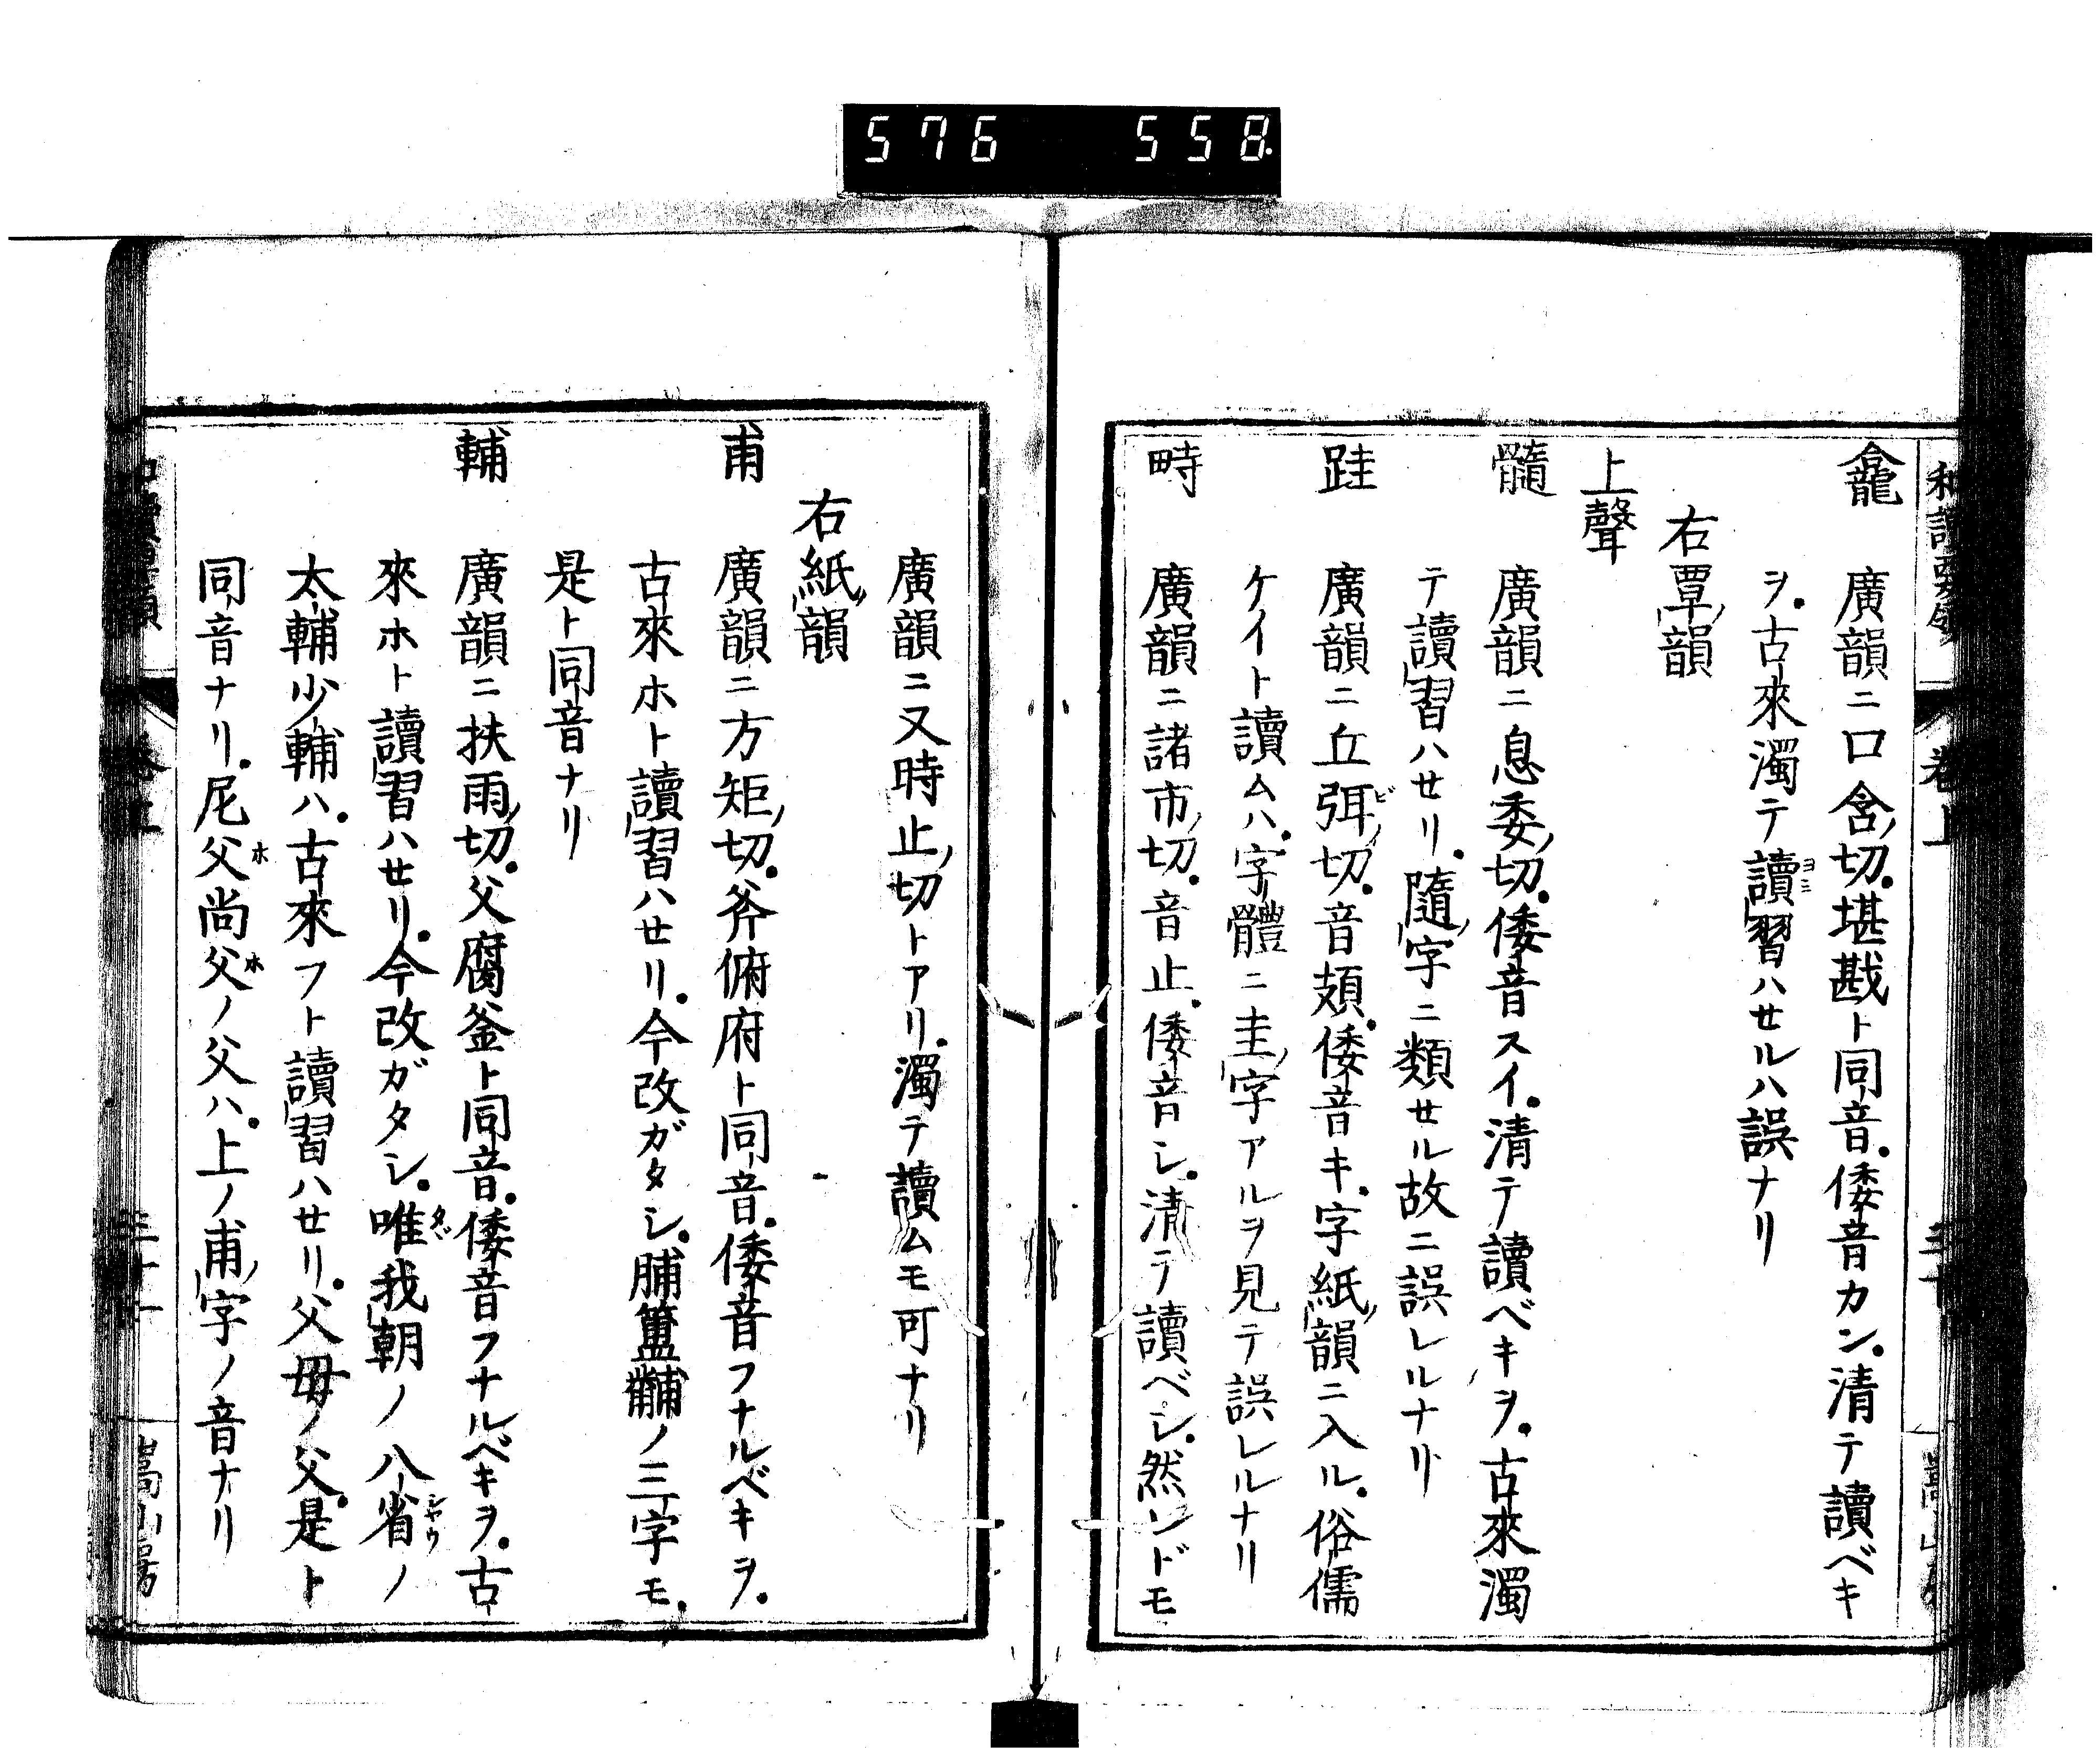 576 558
龕 廣韻ニ口含切。堪戡ト同音。倭音カン。清テ讀ベキ
ヲ。古來濁テ讀習ハセルハ誤ナリ
ヨミ
右覃韻
上聲
髓 廣韻ニ息委切。倭音スイ。清テ讀ベキヲ。古來濁
テ讀習ハセリ。隨字ニ類セル故ニ誤レルナリ
跬 廣韻ニ丘弭切。音頍。倭音キ。字紙韻ニ入ル。俗儒
ビ
ケイト讀ムハ。字體ニ圭字アルヲ見テ誤レルナリ
畤 廣韻ニ諸市切。音止。倭音シ。清テ讀ベシ。然ンドモ
廣韻ニ又時止切トアリ。濁テ讀ムモ可ナリ
右紙韻
甫 廣韻ニ方矩切。斧俯府ト同音。倭音フナルベキヲ。
古來ホト讀習ハセリ。今改ガタシ。脯簠黼ノ三字モ。
是ト同音ナリ
輔 廣韻ニ扶雨切。父腐釜ト同音。倭音フナルベキヲ。古
來ホト讀習ハセリ。今改ガタシ。唯我朝ノ八省ノ
タヾ
シヤウ
太輔少輔ハ。古來フト讀習ハセリ。父母ノ父。是ト
同音ナリ。尼父尚父ノ父ハ。上ノ甫字ノ音ナリ
ホ
ホ